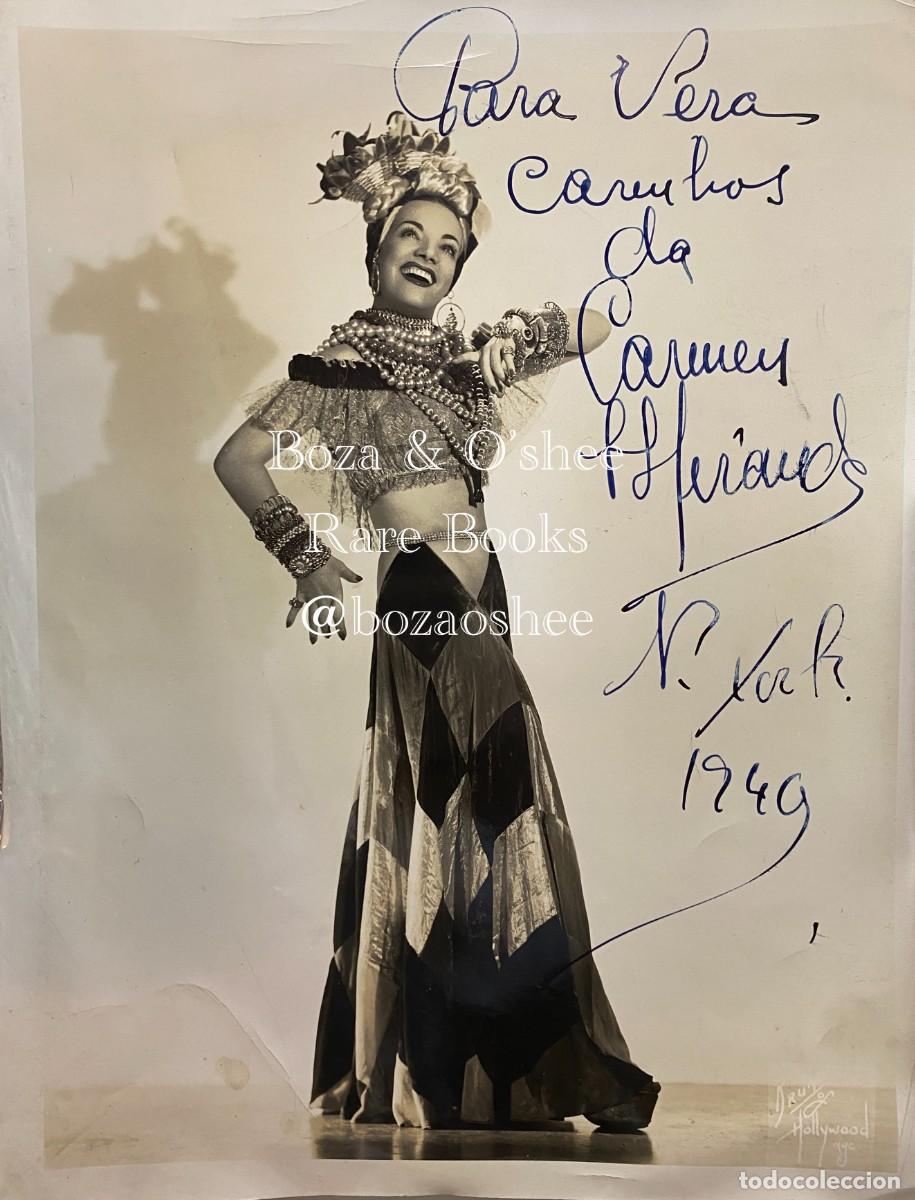 Para Vera
carinhos
da
Carmen
Miranda
N. York.
1940
Boza & O'shee
Rare Books
@bozaoshee
Bruno of
Hollywood
nyc
todocoleccion